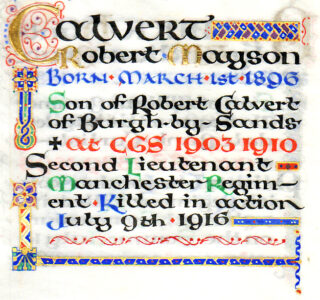 Calvert
Robert · Mayson
Born · March · 1st · 1896
Son of Robert Calvert
of Burgh-by-Sands
+ at CGS 1903 1910
Second Lieutenant
Manchester Regim-
ent · Killed in action
July 9th · 1916